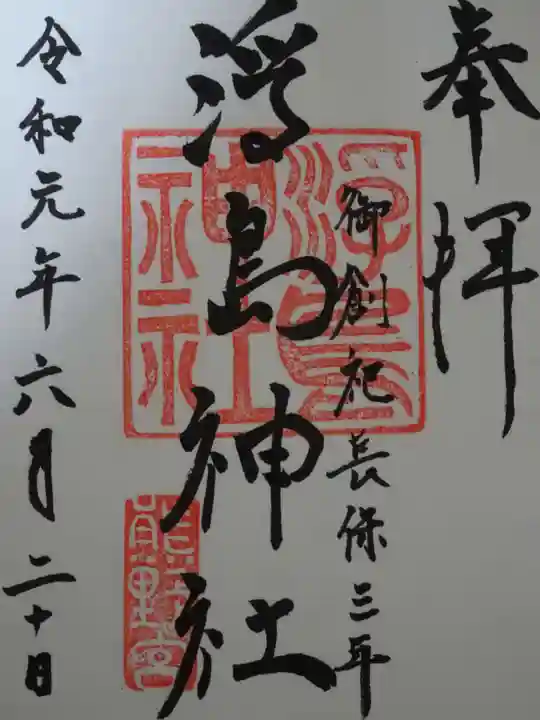 奉拝
御創祀長保三年
浮島神社
浮島神社
熊野宮
令和元年六月二十日